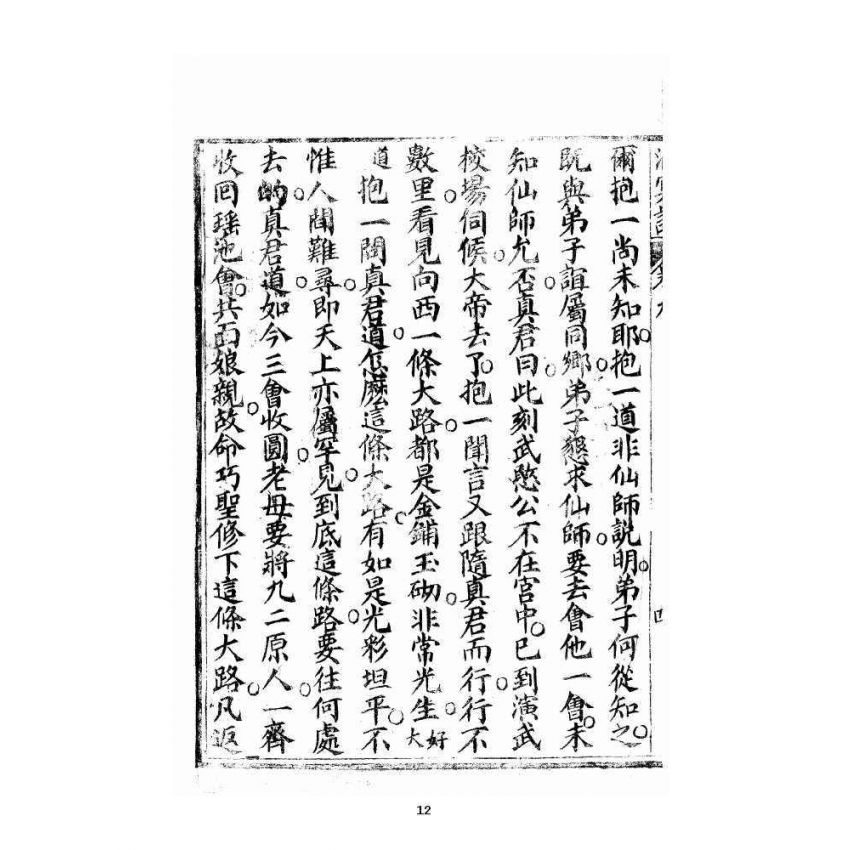 爾抱一尚未知耶抱一道非仙師說明弟子何從知之
既與弟子誼屬同鄉弟子懇求仙師要去會他一會未
知仙師允否真君曰此刻武愍公不在宮中已到演武
校場伺候大帝去了抱一聞言又跟隨真君而行行不
數里看見向西一條大路都是金鋪玉砌非常光生好大
道抱一問真君道怎麼這條大路有如是光彩坦平不
惟人間難尋即天上亦屬罕見到底這條路要往何處
去的真君道如今三會收圓老母要將九二原人一齊
收回瑤池會共面娘親故命巧聖修下這條大路凡返
12